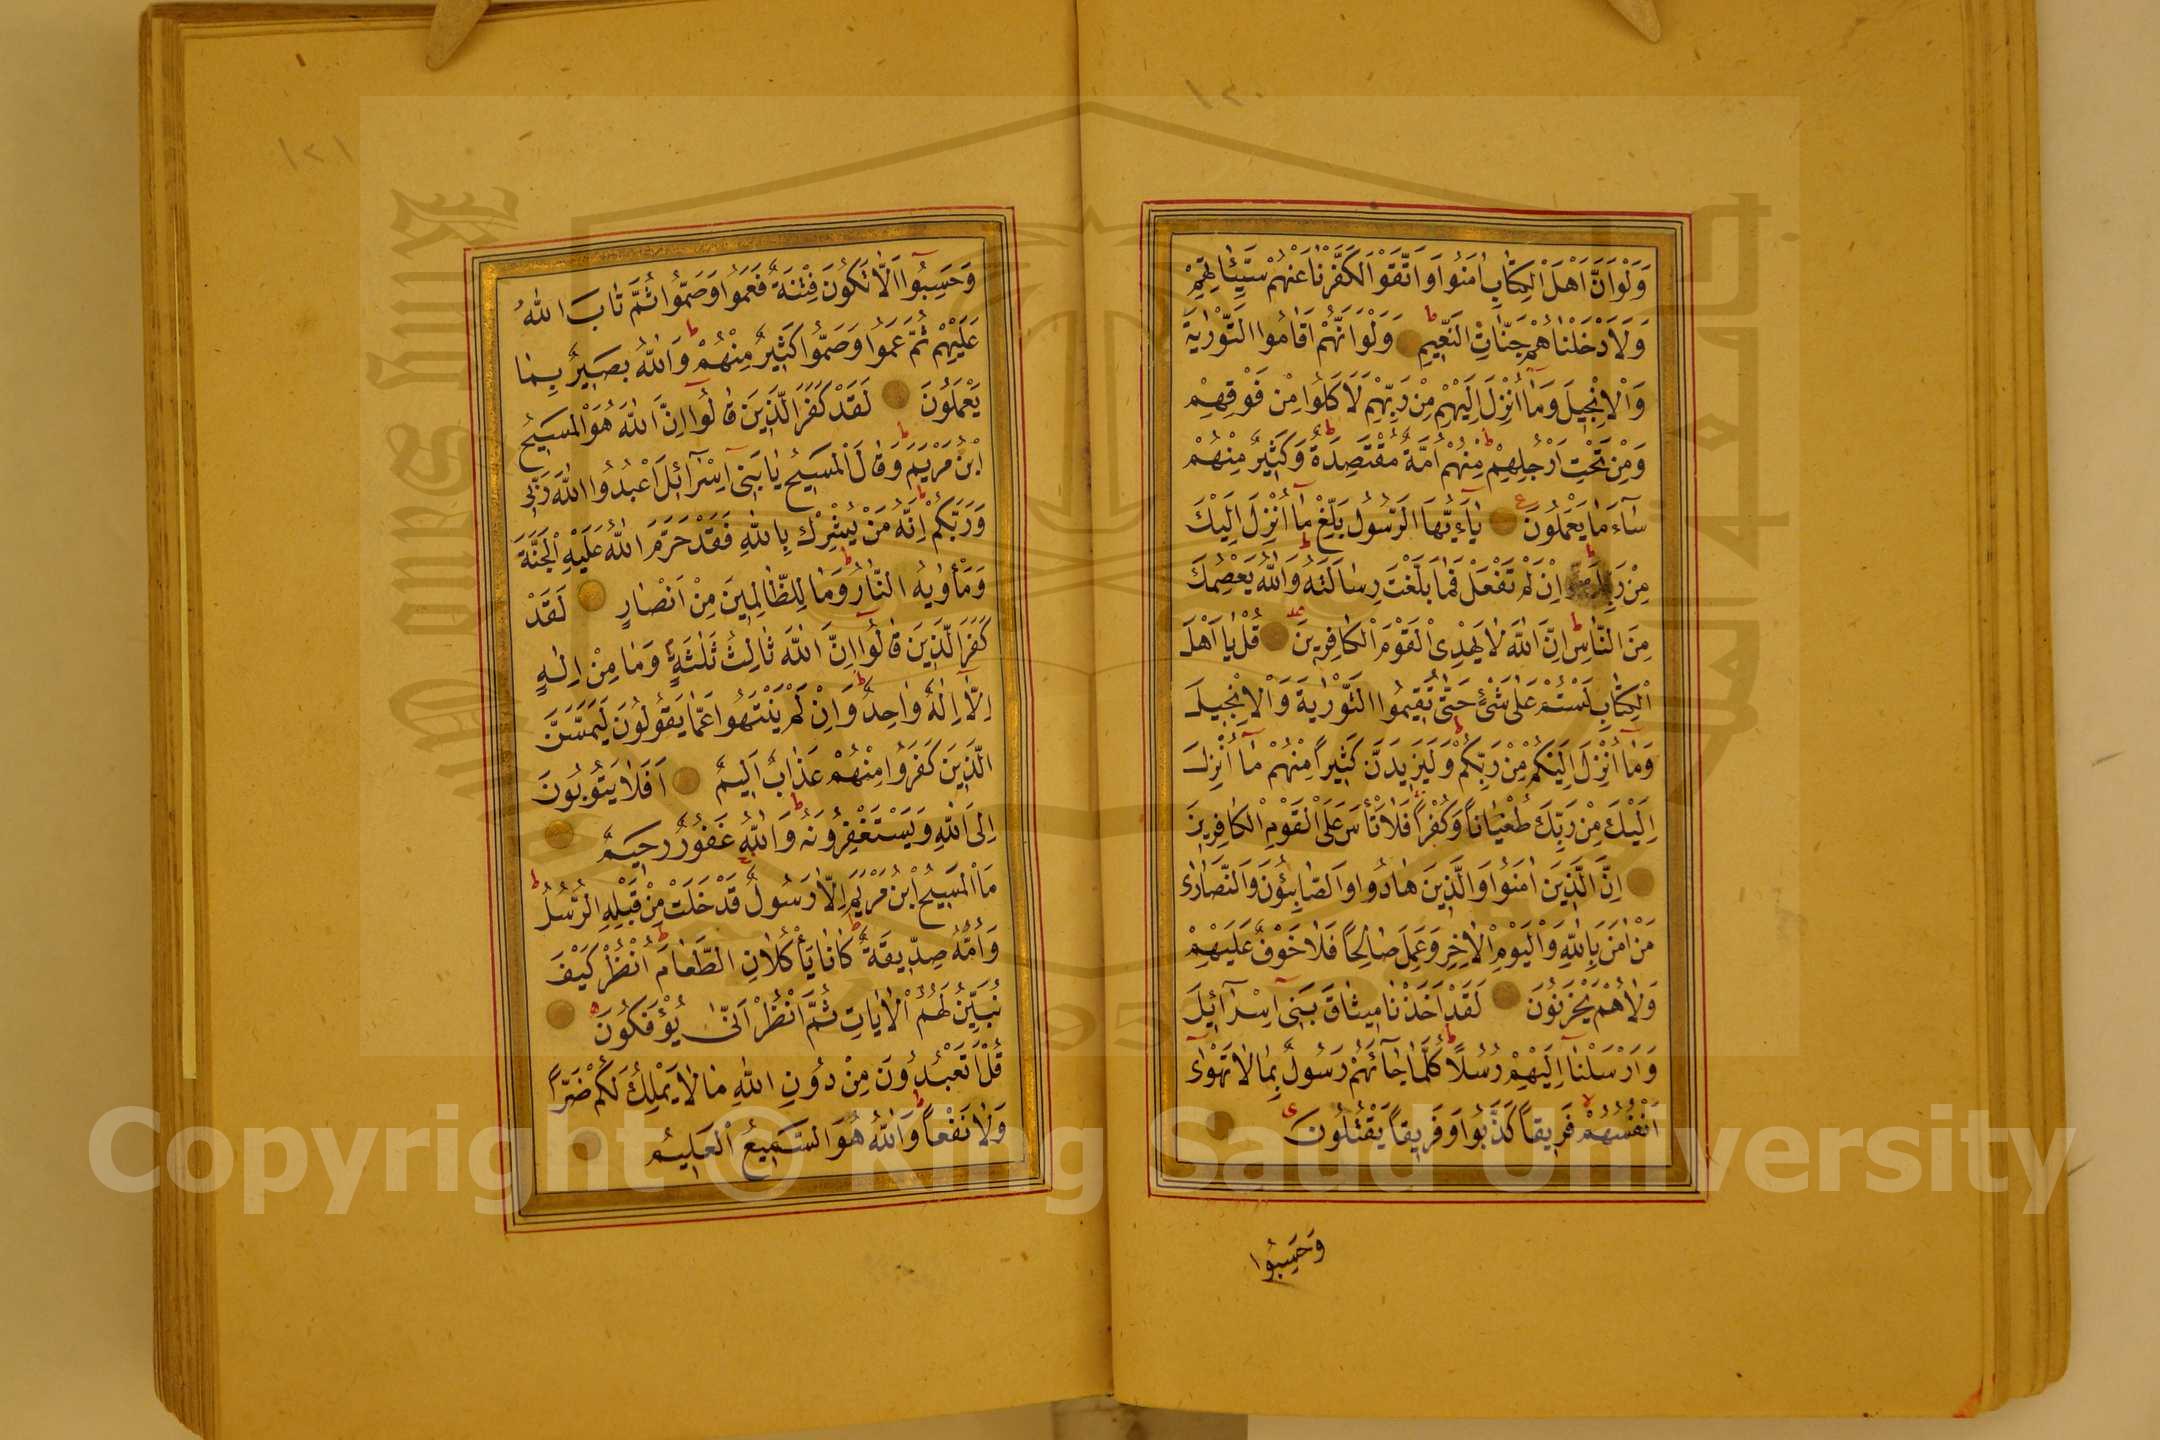 ١٢٠
وَلَوْ اَنَّ اَهْلَ الْكِتَابِ اٰمَنُوا وَاتَّقَوْا لَكَفَّرْنَا عَنْهُمْ سَيِّئَاتِهِمْ
وَلَاَدْخَلْنَاهُمْ جَنَّاتِ النَّعِيمِ وَلَوْ اَنَّهُمْ اَقَامُوا التَّوْرٰيةَ
وَالْاِنْجِيلَ وَمَٓا اُنْزِلَ اِلَيْهِمْ مِنْ رَبِّهِمْ لَاَكَلُوا مِنْ فَوْقِهِمْ
وَمِنْ تَحْتِ اَرْجُلِهِمْ ط مِنْهُمْ اُمَّةٌ مُقْتَصِدَةٌ ط وَكَثِيرٌ مِنْهُمْ
سَٓاءَ مَا يَعْمَلُونَ ع يَٓا اَيُّهَا الرَّسُولُ بَلِّغْ مَٓا اُنْزِلَ اِلَيْكَ
مِنْ رَبِّكَ ط وَاِنْ لَمْ تَفْعَلْ فَمَا بَلَّغْتَ رِسَالَتَهُ ط وَاللّٰهُ يَعْصِمُكَ
مِنَ النَّاسِ ط اِنَّ اللّٰهَ لَا يَهْدِى الْقَوْمَ الْكَافِرِينَ قُلْ يَا اَهْلَ
الْكِتَابِ لَسْتُمْ عَلٰى شَىْءٍ حَتّٰى تُقِيمُوا التَّوْرٰيةَ وَالْاِنْجِيلَ
وَمَٓا اُنْزِلَ اِلَيْكُمْ مِنْ رَبِّكُمْ ط وَلَيَزِيدَنَّ كَثِيراً مِنْهُمْ مَٓا اُنْزِلَ
اِلَيْكَ مِنْ رَبِّكَ طُغْيَاناً وَكُفْراً فَلَا تَأْسَ عَلَى الْقَوْمِ الْكَافِرِينَ
اِنَّ الَّذِينَ اٰمَنُوا وَالَّذِينَ هَادُوا وَالصَّابِئُونَ وَالنَّصَارٰى
مَنْ اٰمَنَ بِاللّٰهِ وَالْيَوْمِ الْاٰخِرِ وَعَمِلَ صَالِحاً فَلَا خَوْفٌ عَلَيْهِمْ
وَلَا هُمْ يَحْزَنُونَ لَقَدْ اَخَذْنَا مِيثَاقَ بَنِٓى اِسْرَٓائِلَ
وَاَرْسَلْنَٓا اِلَيْهِمْ رُسُلاً ط كُلَّمَا جَٓائَهُمْ رَسُولٌ بِمَا لَا تَهْوٰٓى
اَنْفُسُهُمْ لا فَرِيقاً كَذَّبُوا وَفَرِيقاً يَقْتُلُونَ ى
وَحَسِبُوا
١٢١
وَحَسِبُٓوا اَلَّا تَكُونَ فِتْنَةٌ فَعَمُوا وَصَمُّوا ثُمَّ تَابَ اللّٰهُ
عَلَيْهِمْ ثُمَّ عَمُوا وَصَمُّوا كَثِيرٌ مِنْهُمْ ط وَاللّٰهُ بَصِيرٌ بِمَا
يَعْمَلُونَ لَقَدْ كَفَرَ الَّذِينَ قَالُٓوا اِنَّ اللّٰهَ هُوَ الْمَسِيحُ
ابْنُ مَرْيَمَ ط وَقَالَ الْمَسِيحُ يَا بَنِٓى اِسْرَٓائِلَ اعْبُدُوا اللّٰهَ رَبِّى
وَرَبَّكُمْ ط اِنَّهُ مَنْ يُشْرِكْ بِاللّٰهِ فَقَدْ حَرَّمَ اللّٰهُ عَلَيْهِ الْجَنَّةَ
وَمَأْوٰيهُ النَّارُ ط وَمَا لِلظَّالِمِينَ مِنْ اَنْصَارٍ لَقَدْ
كَفَرَ الَّذِينَ قَالُٓوا اِنَّ اللّٰهَ ثَالِثُ ثَلٰثَةٍ وَمَا مِنْ اِلٰهٍ
اِلَّٓا اِلٰهٌ وَاحِدٌ ط وَاِنْ لَمْ يَنْتَهُوا عَمَّا يَقُولُونَ لَيَمَسَّنَّ
الَّذِينَ كَفَرُوا مِنْهُمْ عَذَابٌ اَلِيمٌ اَفَلَا يَتُوبُونَ
اِلَى اللّٰهِ وَيَسْتَغْفِرُونَهُ ط وَاللّٰهُ غَفُورٌ رَحِيمٌ
مَا الْمَسِيحُ ابْنُ مَرْيَمَ اِلَّا رَسُولٌ قَدْ خَلَتْ مِنْ قَبْلِهِ الرُّسُلُ ط
وَاُمُّهُ صِدِّيقَةٌ ط كَانَا يَأْكُلَانِ الطَّعَامَ ط اُنْظُرْ كَيْفَ
نُبَيِّنُ لَهُمُ الْاٰيَاتِ ثُمَّ انْظُرْ اَنّٰى يُؤْفَكُونَ
قُلْ اَتَعْبُدُونَ مِنْ دُونِ اللّٰهِ مَا لَا يَمْلِكُ لَكُمْ ضَرّاً
وَلَا نَفْعاً ط وَاللّٰهُ هُوَ السَّمِيعُ الْعَلِيمُ
Copyright © King Saud University